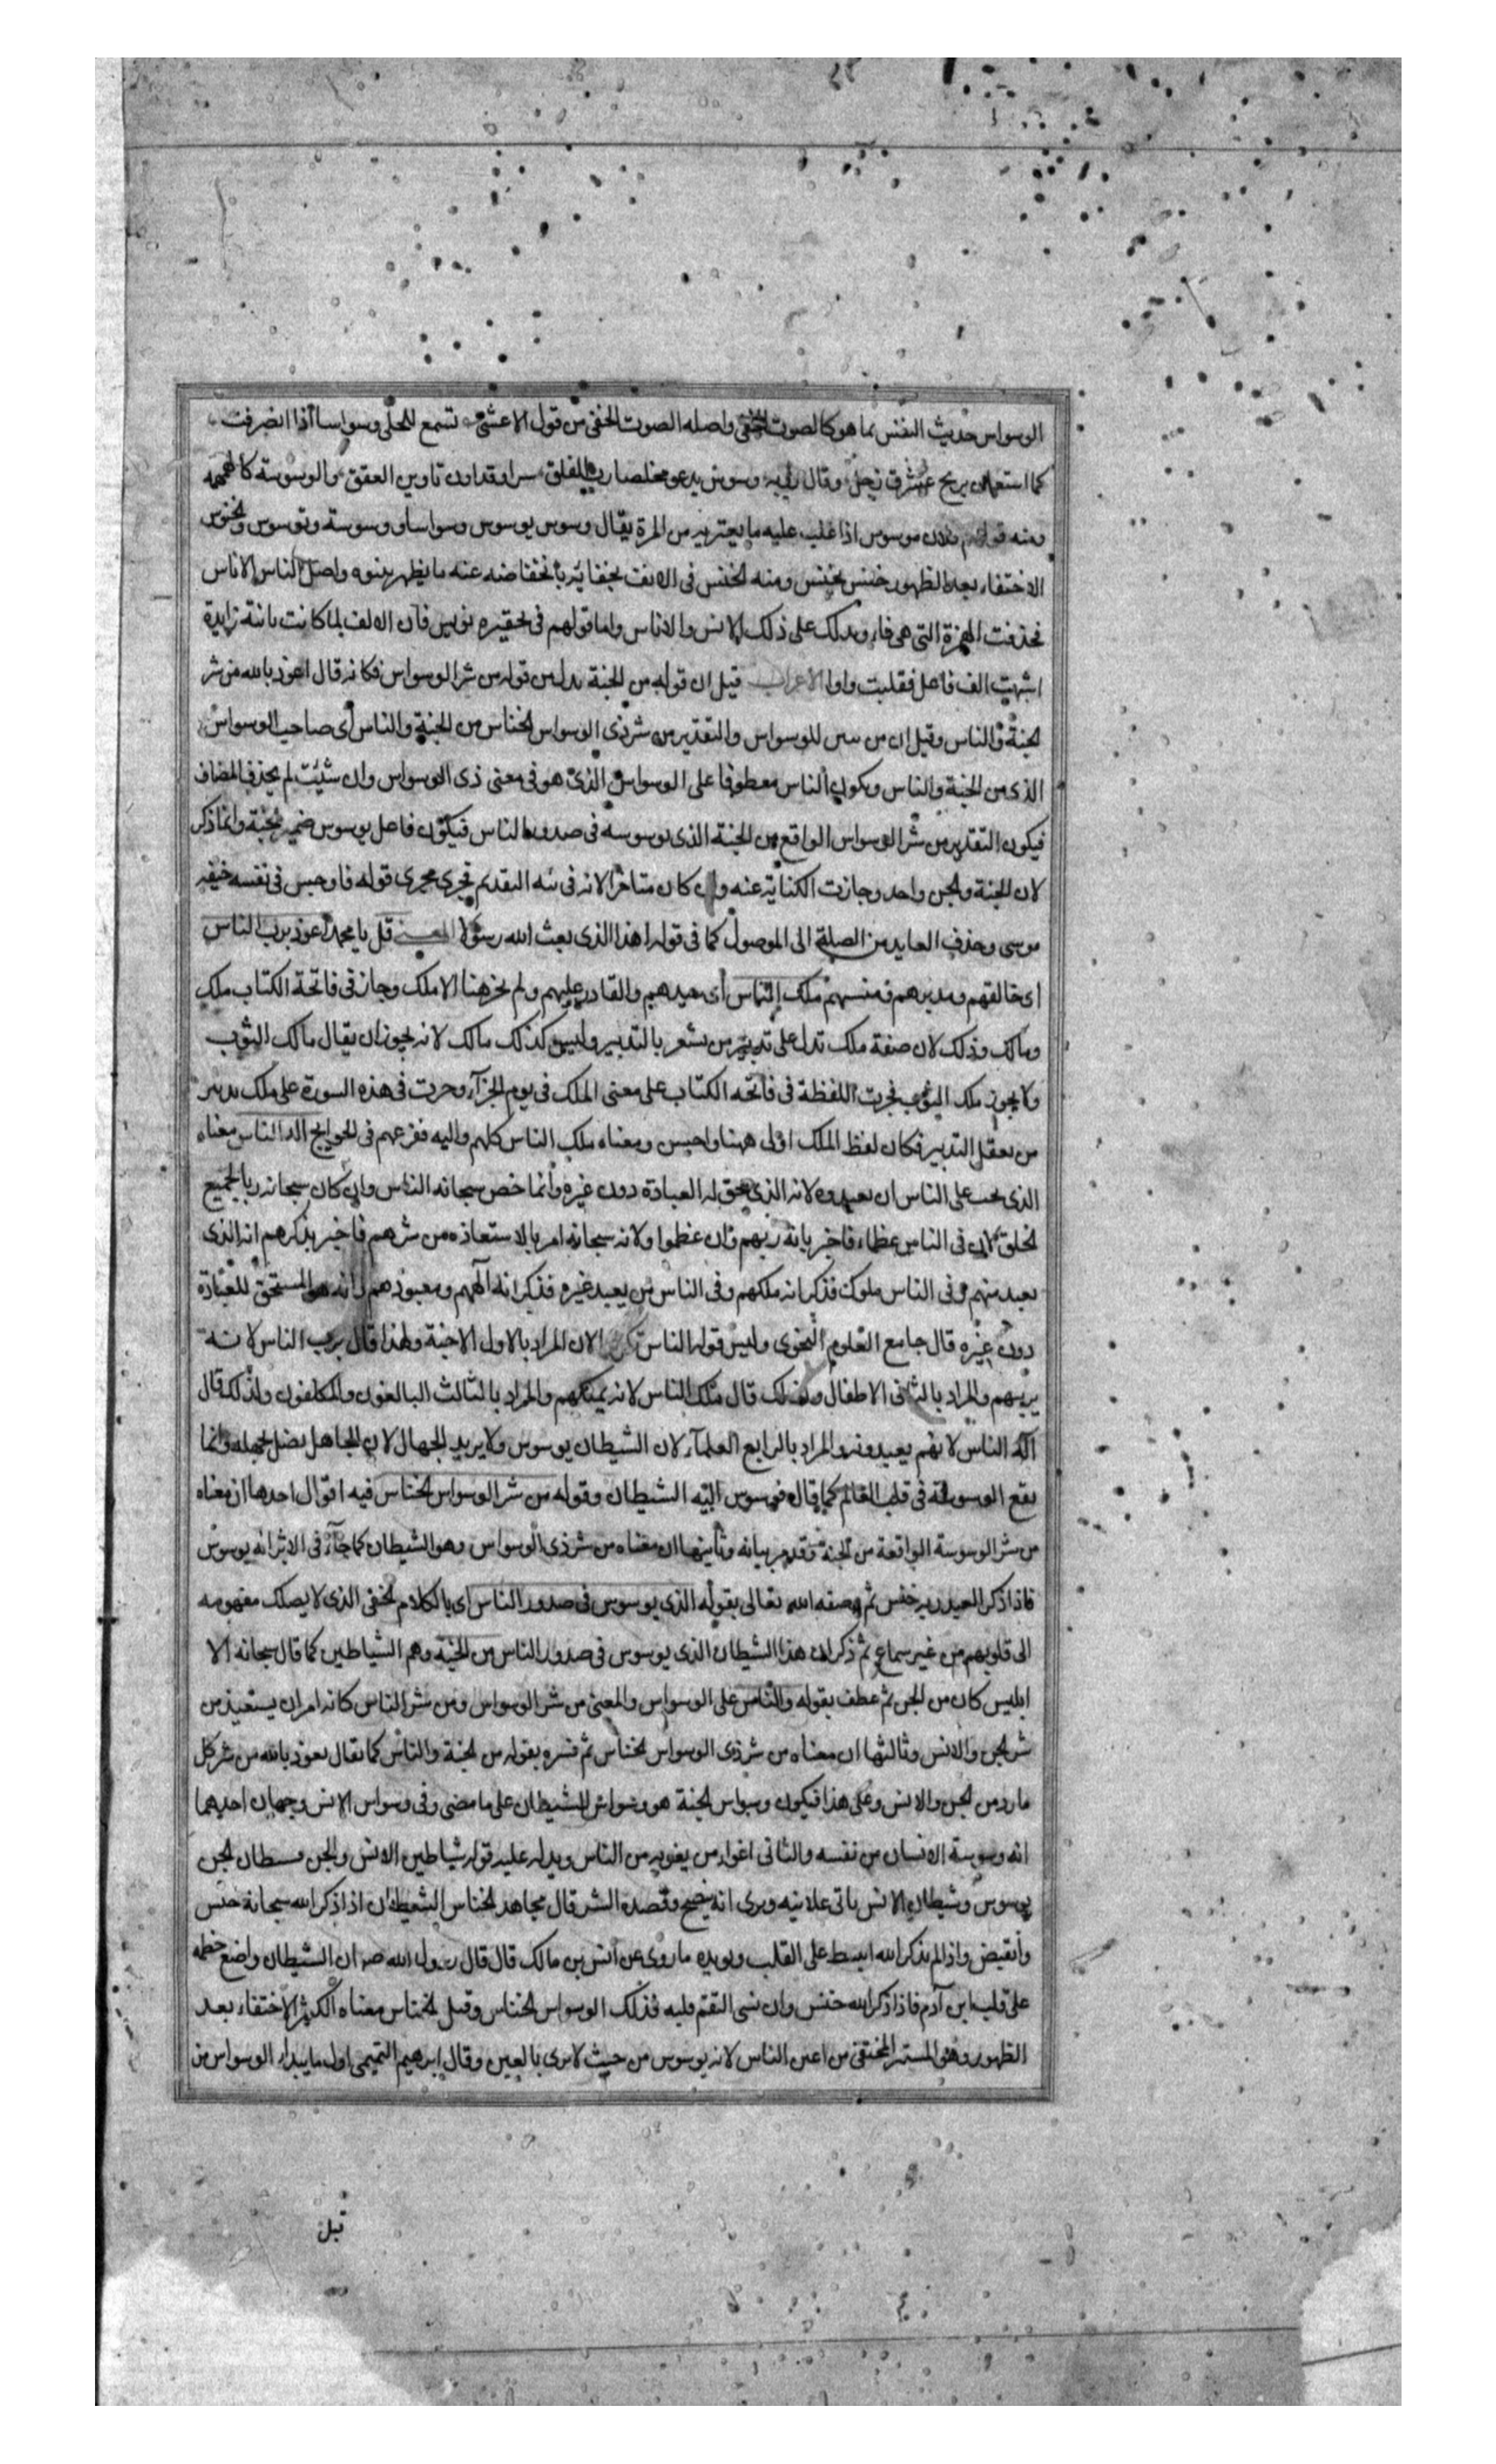 الوسواس حديث النفس بما هو كالصوت الخفي واصله الصوت الخفي من قول الاعشى تسمع للحلى وسواسا اذا انصرفت
كما استعان بريح عشرق زجل وقال روبة وسوس يدعو مخلصا رب الفلق سرا وقد اون تاوين العقق والوسوسة كالهمهمه
ومنه قولهم فلان موسوس اذا غلب عليه ما يعتريه من المرة يقال وسوس يوسوس وسواسا و وسوسة وتوسوس والخنوس
الاختفاء بعد الظهور خنس يخنس ومنه الخنس في الانف لخفائه بانخفاضه عنه ما يظهر بنتوه واصل الناس الاناس
فحذفت الهمزة التي هي فاء ويدلك على ذلك الانس والاناس واما قولهم في تحقيره نويس فان الالف لما كانت ثانية زايدة
اشبهت الف فاعل فقلبت واوا الاعراب قيل ان قوله من الجنة بدل من قوله من شر الوسواس فكانه قال اعوذ بالله من شر
الجنة والناس وقيل ان من تبيين للوسواس والتقدير من شر ذي الوسواس الخناس من الجنة والناس اى صاحب الوسواس
الذى من الجنة والناس ويكون الناس معطوفا على الوسواس الذى هو في معنى ذى الوسواس وان شئت لم يحذف المضاف
فيكون التقدير من شر الوسواس الواقع من الجنة الذى يوسوسه في صدور الناس فيكون فاعل يوسوس ضمير الجنة وانما ذكر
لان الجنة والجن واحد وجازت الكناية عنه وان كان متاخرا لانه في نية التقديم فجرى مجرى قوله فاوجس في نفسه خيفه
موسى وحذف العايد من الصلة الى الموصول كما في قوله اهذا الذى بعث الله رسولا المعنى قل يا محمد اعوذ برب الناس
اى خالقهم ومدبرهم ومنشيهم ملك الناس اى سيدهم والقادر عليهم ولم يجز هنا الا ملك وجاز في فاتحة الكتاب ملك
ومالك وذلك لان صفة ملك تدل على تدبير من يشعر بالتدبير وليس كذلك مالك لانه يجوز ان يقال مالك الثوب
ولا يجوز ملك الثوب فجرت اللفظة في فاتحه الكتاب على معنى الملك في يوم الجزآء وجرت في هذه السورة على ملك تدبير
من يعقل التدبير فكان لفظ الملك اولى ههنا واحسن ومعناه ملك الناس كلهم واليه مفزعهم في الحوايج اله الناس معناه
الذى يجب على الناس ان يعبدوه لانه الذى تحق له العبادة دون غيره وانما خص سبحانه الناس وان كان سبحانه ربا لجميع
الخلق لان في الناس عظماء فاخبر بانه ربهم وان عظموا ولانه سبحانه امر بالاستعاذه من شرهم فاخبر بذكرهم انه الذى
يعيذ منهم وفى الناس ملوك فذكر انه ملكهم وفى الناس من يعبد غيره فذكر انه الههم ومعبودهم وانه هو المستحق للعبادة
دون غيره قال جامع العلوم النحوى وليس قوله الناس تكرارا لان المراد بالاول الاجنة ولهذا قال برب الناس لانه
يربيهم والمراد بالثانى الاطفال ولذلك قال ملك الناس لانه يملكهم والمراد بالثالث البالغون والمكلفون ولذلك قال
اله الناس لانهم يعبدونه والمراد بالرابع العلمآء لان الشيطان يوسوس ولا يريد الجهال لان الجاهل يضل بجهله وانما
يقع الوسوسة في قلب العالم كما قال فوسوس اليه الشيطان وقوله من شر الوسواس الخناس فيه اقوال احدها ان معناه
من شر الوسوسة الواقعة من الجنة وقد مر بيانه وثانيها ان معناه من شر ذى الوسواس وهو الشيطان كما جآء في الاثر انه يوسوس
فاذا ذكر العبد ربه خنس ثم وصفه الله تعالى بقوله الذى يوسوس في صدور الناس اى بالكلام الخفى الذى لا يصلك مفهومه
الى قلوبهم من غير سماع ثم ذكر ان هذا الشيطان الذى يوسوس في صدور الناس من الجنة وهم الشياطين كما قال سبحانه الا
ابليس كان من الجن ثم عطف بقوله والناس على الوسواس والمعنى من شر الوسواس ومن شر الناس كانه امر ان يستعيذ من
شر الجن والانس وثالثها ان معناه من شر ذى الوسواس الخناس ثم فسره بقوله من الجنة والناس كما يقال نعوذ بالله من شر كل
مارد من الجن والانس وعلى هذا فيكون وسواس الجنة هو وسواس الشيطان على ما مضى وفى وسواس الانس وجهان احديهما
انه وسوسة الانسان من نفسه والثانى اغواء من يغويه من الناس ويدل عليه قوله شياطين الانس والجن فشيطان الجن
يوسوس وشيطان الانس ياتى علانيه ويرى انه ينصح وقصده الشر قال مجاهد الخناس الشيطان اذا ذكر الله سبحانه خنس
وانقبض واذا لم يذكر الله انبسط على القلب ويويده ما روى عن انس بن مالك قال قال رسول الله صه ان الشيطان واضع خطمه
على قلب ابن آدم فاذا ذكر الله خنس وان نسى التقم قلبه فذلك الوسواس الخناس وقيل الخناس معناه الكثير الاختفاء بعد
الظهور وهو المستتر المختفى من اعين الناس لانه يوسوس من حيث لا يرى بالعين وقال ابرهيم التيمى اول ما يبدا الوسواس من
قبل